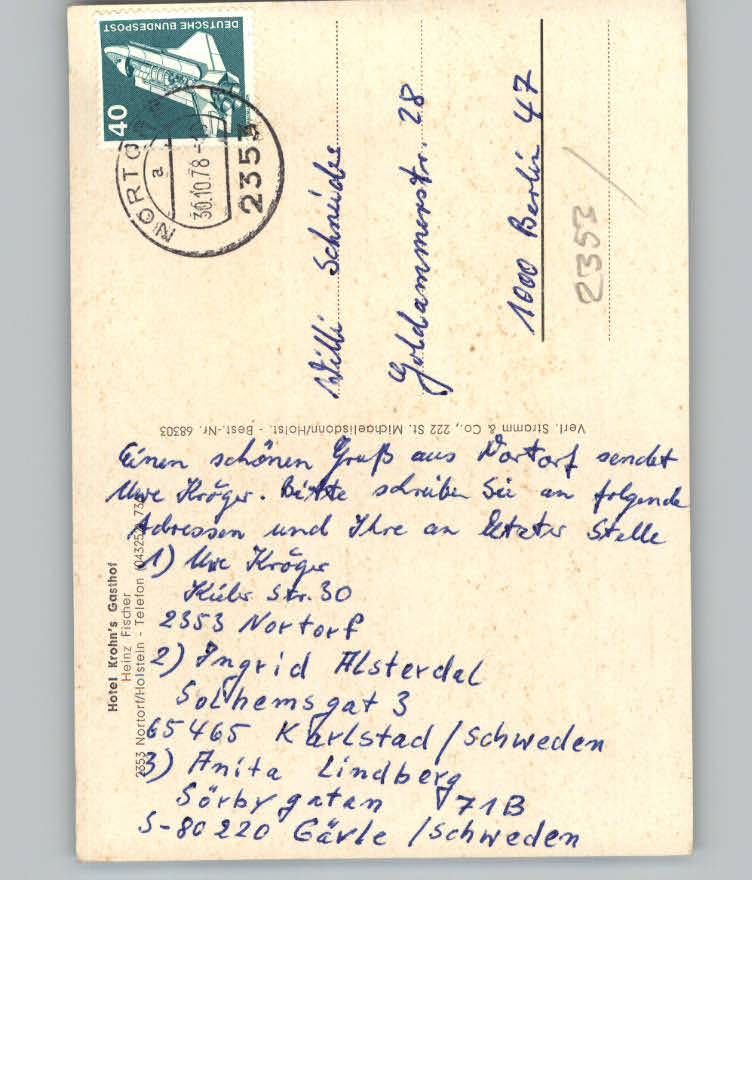 DEUTSCHE BUNDESPOST
40
NORTO
a
30.10.78
2353
Willi Schneider
Goldammerstr. 28
1000 Berlin 47
2353
Verl. Stramm & Co., 222 St. Michaelisdonn/Holst. - Best.-Nr. 68303
Hotel Krohn's Gasthof
Heinz Fischer
2353 Nortorf/Holstein - Telefon (04325)
Einen schönen Gruß aus Nortorf sendet
Uwe Kröger. Bitte schreiben Sie an folgende
Adressen und Ihre an letzter Stelle
1) Uwe Kröger
Str. 30
2353 Nortorf
2) Ingrid Alsterdal
Solhemsgat 3
65465 Karlstad / Schweden
3) Anita Lindberg
Sörbygatan 71B
S-80220 Gävle / Schweden